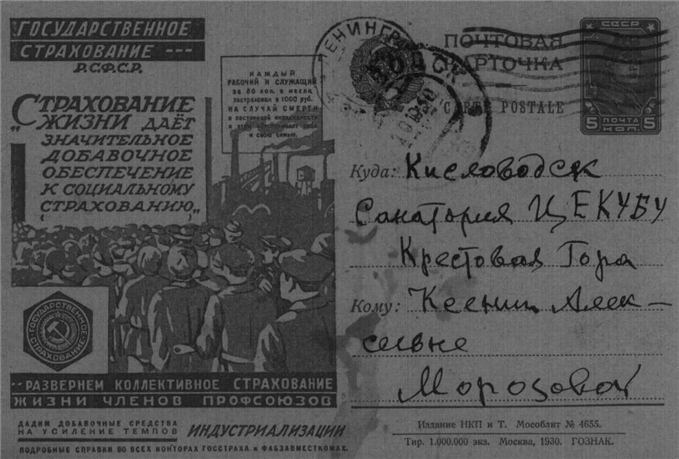 ГОСУДАРСТВЕННОЕ
СТРАХОВАНИЕ
Р.С.Ф.С.Р.
„СТРАХОВАНИЕ
ЖИЗНИ ДАЁТ
ЗНАЧИТЕЛЬНОЕ
ДОБАВОЧНОЕ
ОБЕСПЕЧЕНИЕ
К СОЦИАЛЬНОМУ
СТРАХОВАНИЮ„
КАЖДЫЙ
РАБОЧИЙ И СЛУЖАЩИЙ
за 80 коп. в месяц
застрахован в 1000 руб.
НА СЛУЧАЙ СМЕРТИ
и свою семью.
ГОСУДАРСТВЕННОЕ
СТРАХОВАНИЕ
РАЗВЕРНЕМ КОЛЛЕКТИВНОЕ СТРАХОВАНИЕ
ЖИЗНИ ЧЛЕНОВ ПРОФСОЮЗОВ
ДАДИМ ДОБАВОЧНЫЕ СРЕДСТВА
НА УСИЛЕНИЕ ТЕМПОВ ИНДУСТРИАЛИЗАЦИИ
ПОДРОБНЫЕ СПРАВКИ ВО ВСЕХ КОНТОРАХ ГОССТРАХА И ФАБЗАВМЕСТКОМАХ.
ЛЕНИНГРАД
ПОЧТОВАЯ
КАРТОЧКА
CARTE POSTALE
СССР
5 ПОЧТА 5
КОП.
Куда: Кисловодск
Санатория ЦЕКУБУ
Крестовая Гора
Кому: Ксении Алек–
сеевне
Морозовой
Издание НКП и Т. Мособлит № 4655.
Тир. 1.000.000 экз. Москва, 1930. ГОЗНАК.